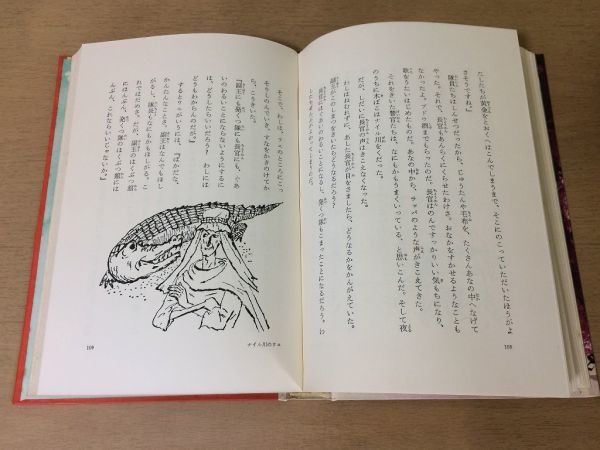 たしたちが黄金をとおくへはこんでしまうまで、そこにのこっていただいたほうがよ
さそうですね。』
隊員たちはしんせつだったから、じゅうたんや毛布を、たくさんあなの中へなげて
やった。それで、長官もあんらくにくらせたわけさ。おなかをすかせるようなことも
なかった。ブドウ酒までもらったのだ。長官はのんですっかりいい気もちになり、
歌をうたいはじめたものだ。あなの中から、チャパのような声がきこえてきた。
それをきいた警官たちは、なにもかもうまくいっている、と思いこんだ。そして夜
のうちに木ばこはナイル川をくだった。
だが、しだいに長官の声はきこえなくなった。
わしはねむれずに、あした長官が目をさましたら、どうなるかをかんがえていた。
副王がこのしまつをきいたらどうなるだろう？
長官にはくあいのわるいことになるし、発くつ隊もこまったことになるだろう。わ
108
そこで、わしは、クュのところにこっ
そりしのんでいき、すなをかきのけてか
ら、こうきいた。
『副王にも発くつ隊にも長官にも、ぐあ
いのわるいことにならないようにするに
は、どうしたらいいだろう？　わしには
どうもわからないのだ。』
するとクュがいうには、『ばかだな、
かんたんなことだ。副王はなんでもほし
がるし、隊長もなにもかもほしがる。こ
れではだめさ。だが、副王のはくぶつ館に
はんぶん、発くつ隊のはくぶつ館には
んぶん、これならいいじゃないか。』
ナイル川のクュ
109